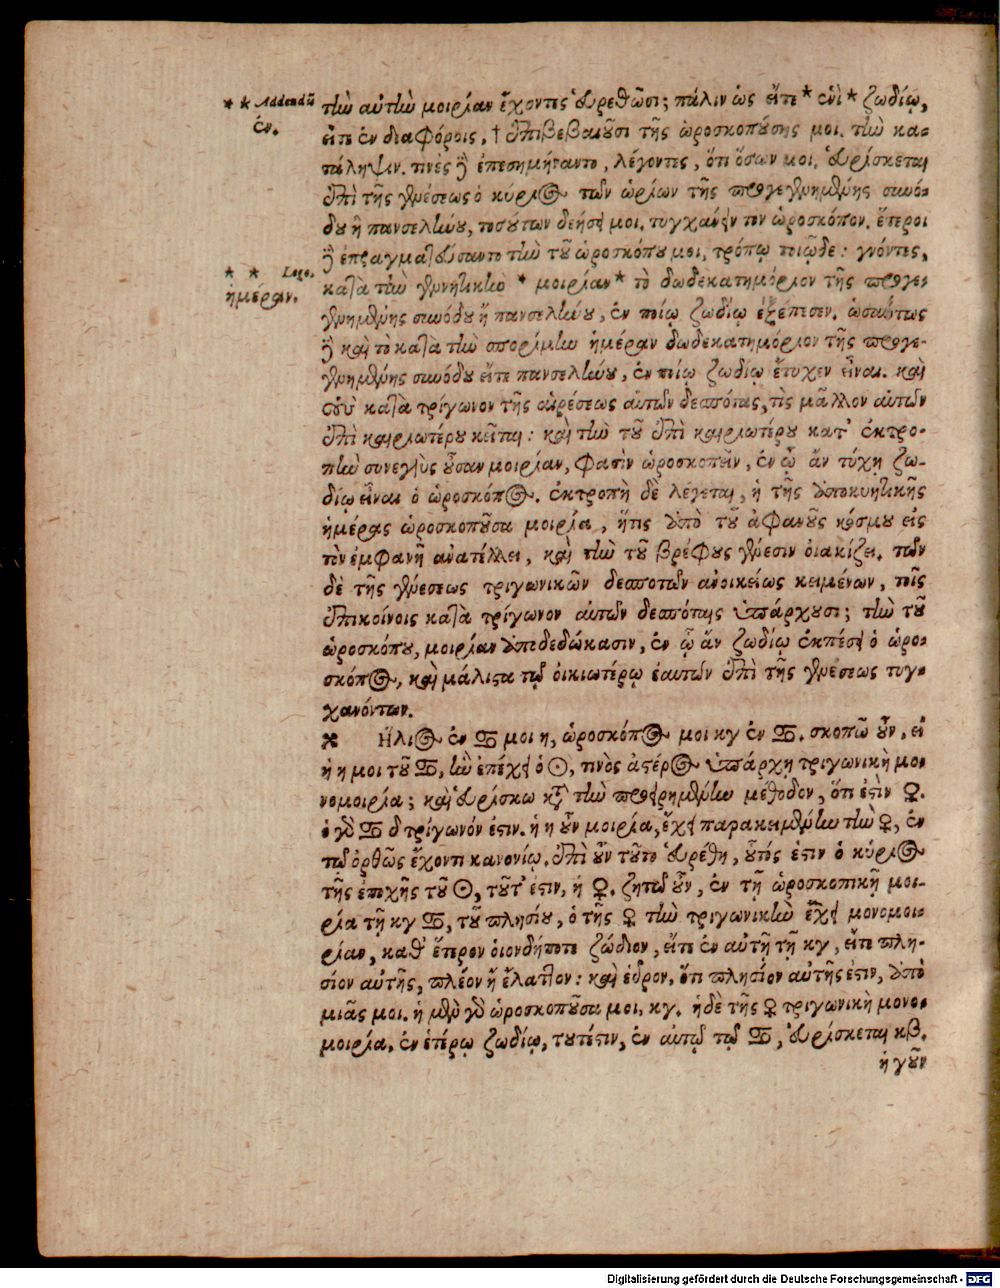 ** Addendũ
ἐν.
τὴν αὐτὴν μοιρίαν ἔχοντες εὑρεθῶσι; πάλιν ὡς εἴτε * ἑνὶ * ζωδίῳ,
εἴτε ἐν διαφόροις, † ἐπιβεβαιοῦσι τῆς ὡροσκοπούσης μοι. τὴν κα-
τάληψιν. τινὲς δὲ ἐπεσημήναντο, λέγοντες, ὅτι ὅσων μοι. εὑρίσκεται
ἐπὶ τῆς γενέσεως ὁ κύριος τῶν ὡρίων τῆς προγεγενημένης συνό-
δου ἢ πανσελήνου, τοσούτων δεήσει μοι. τυγχάνειν τὸν ὡροσκόπον. ἕτεροι
δὲ ἐπραγματεύσαντο τὴν τοῦ ὡροσκόπου μοι. τρόπῳ τοιῷδε: γνόντες,
* * Loco.
ἡμέραν.
κατὰ τὴν γενητικὴν * μοιρίαν * τὸ δωδεκατημόριον τῆς προγε-
γενημένης συνόδου ἢ πανσελήνου, ἐν ποίῳ ζωδίῳ ἐξέπεσεν. ὡσαύτως
δὲ καὶ τὸ κατὰ τὴν σπορίμην ἡμέραν δωδεκατημόριον τῆς προγε-
γενημένης συνόδου εἴτε πανσελήνου, ἐν ποίῳ ζωδίῳ ἔτυχεν εἶναι. καὶ
σὺν κατὰ τρίγωνον τῆς αἱρέσεως αὐτῶν δεσπότας, τὶς μᾶλλον αὐτῶν
ἐπὶ καιριωτέρου κεῖται: καὶ τὴν τοῦ ἐπὶ καιριωτέρου κατ' ἐκτρο-
πὴν συνεγγὺς οὖσαν μοιρίαν, φασὶν ὡροσκοπεῖν, ἐν ᾧ ἂν τύχῃ ζω-
δίῳ εἶναι ὁ ὡροσκόπος. ἐκτροπὴ δὲ λέγεται, ἡ τῆς ἀποκυητικῆς
ἡμέρας ὡροσκοποῦσα μοιρία, ἥτις ἀπὸ τοῦ ἀφανοῦς κόσμου εἰς
τὸν ἐμφανῆ ἀνατέλλει, καὶ τὴν τοῦ βρέφους γένεσιν οἰακίζει. τῶν
δὲ τῆς γενέσεως τριγωνικῶν δεσποτῶν ἀνοικείως κειμένων, τοῖς
ἐπικοίνοις κατὰ τρίγωνον αὐτῶν δεσπόταις ὑπάρχουσι; τὴν τοῦ
ὡροσκόπου, μοιρίαν ἀποδεδώκασιν, ἐν ᾧ ἂν ζωδίῳ ἐκπέσει ὁ ὡρο-
σκόπος, καὶ μάλιστα τῷ οἰκιωτέρῳ ἑαυτῶν ἐπὶ τῆς γενέσεως τυγ-
χανόντων.
※ Ἥλιος ἐν ♋ μοι η, ὡροσκόπος μοι κγ ἐν ♋. σκοπῶ οὖν, εἰ
ἡ η μοι τοῦ ♋, ἣν ἐπέχει ὁ ☉, τινὸς ἀστέρος ὑπάρχῃ τριγωνικὴ μο-
νομοιρία; καὶ εὑρίσκω κατὰ τὴν προειρημένην μέθοδον, ὅτι ἐστὶν ♀.
ὁ γὰρ ♋ δ τρίγωνόν ἐστιν. ἡ η οὖν μοιρία, ἔχει παρακειμένην τὴν ♀, ἐν
τῷ ὀρθῶς ἔχοντι κανονίῳ. ἐπὶ οὖν τοῦτο εὑρέθη, οὗτός ἐστιν ὁ κύριος
τῆς ἐποχῆς τοῦ ☉, τοῦτ' ἐστιν, ἡ ♀. ζητῶ οὖν, ἐν τῇ ὡροσκοπικῇ μοι-
ρίᾳ τῇ κγ ♋, τοῦ πλησίου, ὁ τῆς ♀ τὴν τριγωνικὴν ἔχει μονομοι-
ρίαν, καθ' ἕτερον οἱονδήποτε ζώδιον, εἴτε ἐν αὐτῇ τῇ κγ, εἴτε πλη-
σίον αὐτῆς, πλέον ἢ ἔλαττον: καὶ εὗρον, ὅτι πλησίον αὐτῆς ἐστιν, ἀπὸ
μιᾶς μοι. ἡ μὲν γὰρ ὡροσκοποῦσα μοι. κγ. ἡ δὲ τῆς ♀ τριγωνικὴ μονο-
μοιρία. ἐν ἑτέρῳ ζωδίῳ, τουτέστιν, ἐν αὐτῷ τῷ ♋, εὑρίσκεται κβ.
ἡ γοῦν
Digitalisierung gefördert durch die Deutsche Forschungsgemeinschaft - DFG